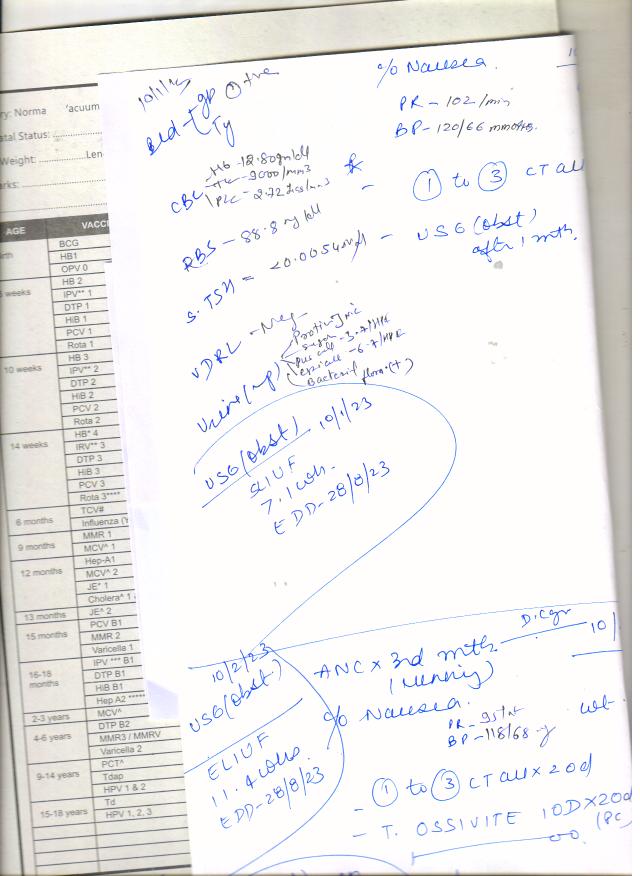 10/1/23
Bld-Tgp ⊕ +ve
Ty
c/o Nausea.
10
PR - 102/min
BP - 120/66 mmHg.
CBC
TLC - 9000/mm3
PLC - 2.72
① to ③ CT all
RBS - 88.8 mg/dl
USG (obst)
after 1 mth.
S. TSH =
VDRL - Neg
Urine (mp)
Sugar
Pus cell -
Epi cell - 6-7/HPF
Bacterial flora (+)
USG (obst) 10/1/23
SLIUF
7.1 wks.
EDD - 28/8/23
10/2/23
USG (obst)
ELIUF
11.4 wks.
EDD - 28/8/23
10/
ANC x 3rd mth.
(running)
c/o Nausea.
BP - 118/68
wt.
- ① to ③ CT all x 20d
- T. OSSIVITE 1OD x 20d
(PC)
ry: Norma 'acuum
atal Status:
Weight: Len
arks:
AGE VACCI
rth BCG
HB1
OPV 0
weeks HB 2
IPV** 1
DTP 1
HiB 1
PCV 1
Rota 1
10 weeks HB 3
IPV** 2
DTP 2
HiB 2
PCV 2
Rota 2
14 weeks HB* 4
IRV** 3
DTP 3
HiB 3
PCV 3
Rota 3****
6 months TCV#
Influenza (
9 months MMR 1
MCV^ 1
12 months Hep-A1
MCV^ 2
JE^ 1
Cholera^ 1
13 months JE^ 2
15 months PCV B1
MMR 2
Varicella 1
16-18 months IPV *** B1
DTP B1
HiB B1
Hep A2 *****
2-3 years MCV^
4-6 years DTP B2
MMR3 / MMRV
Varicella 2
9-14 years PCT^
Tdap
HPV 1 & 2
15-18 years Td
HPV 1, 2, 3